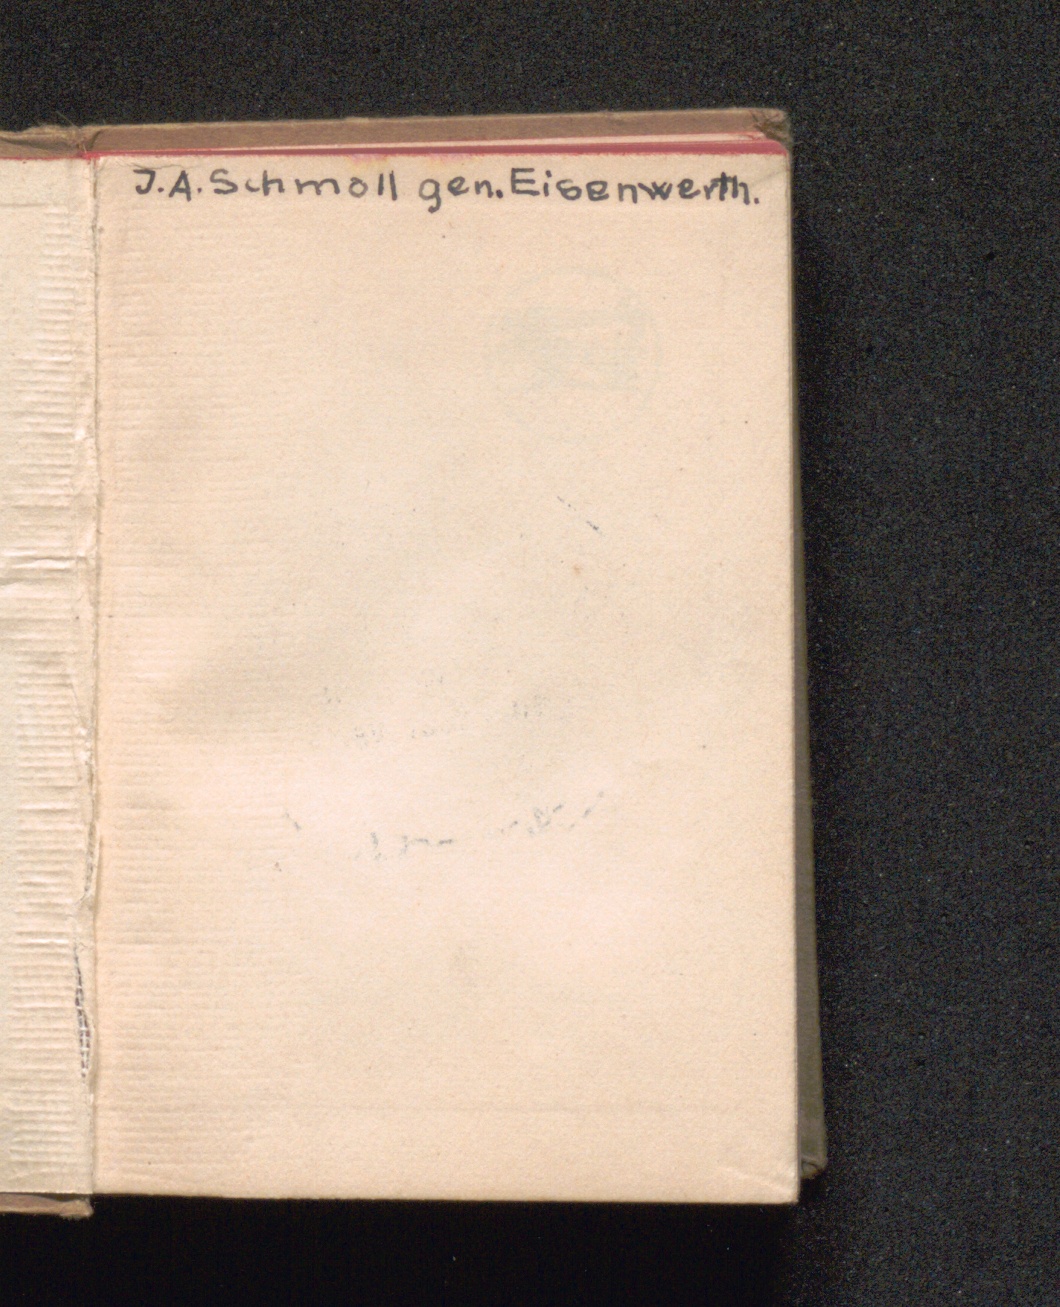 J.A.Schmoll gen.Eisenwerth.